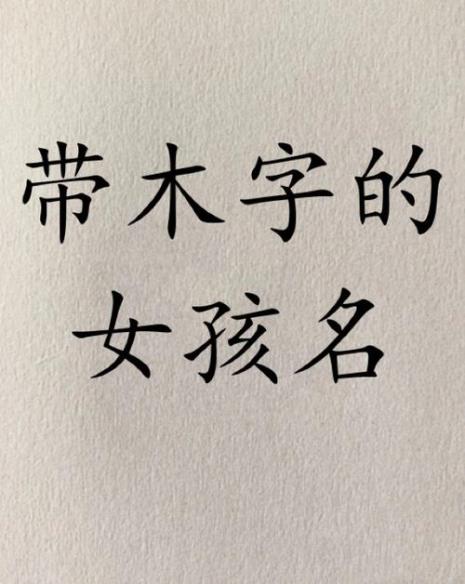 带木字的
女孩名